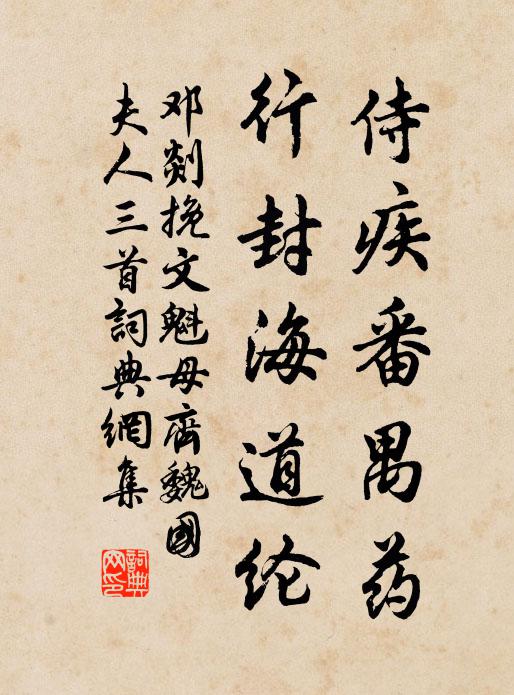 侍疾番禺药
行封海道纶
邓剡挽文魁母齊魏國
夫人三首詞典網集
詞典网印